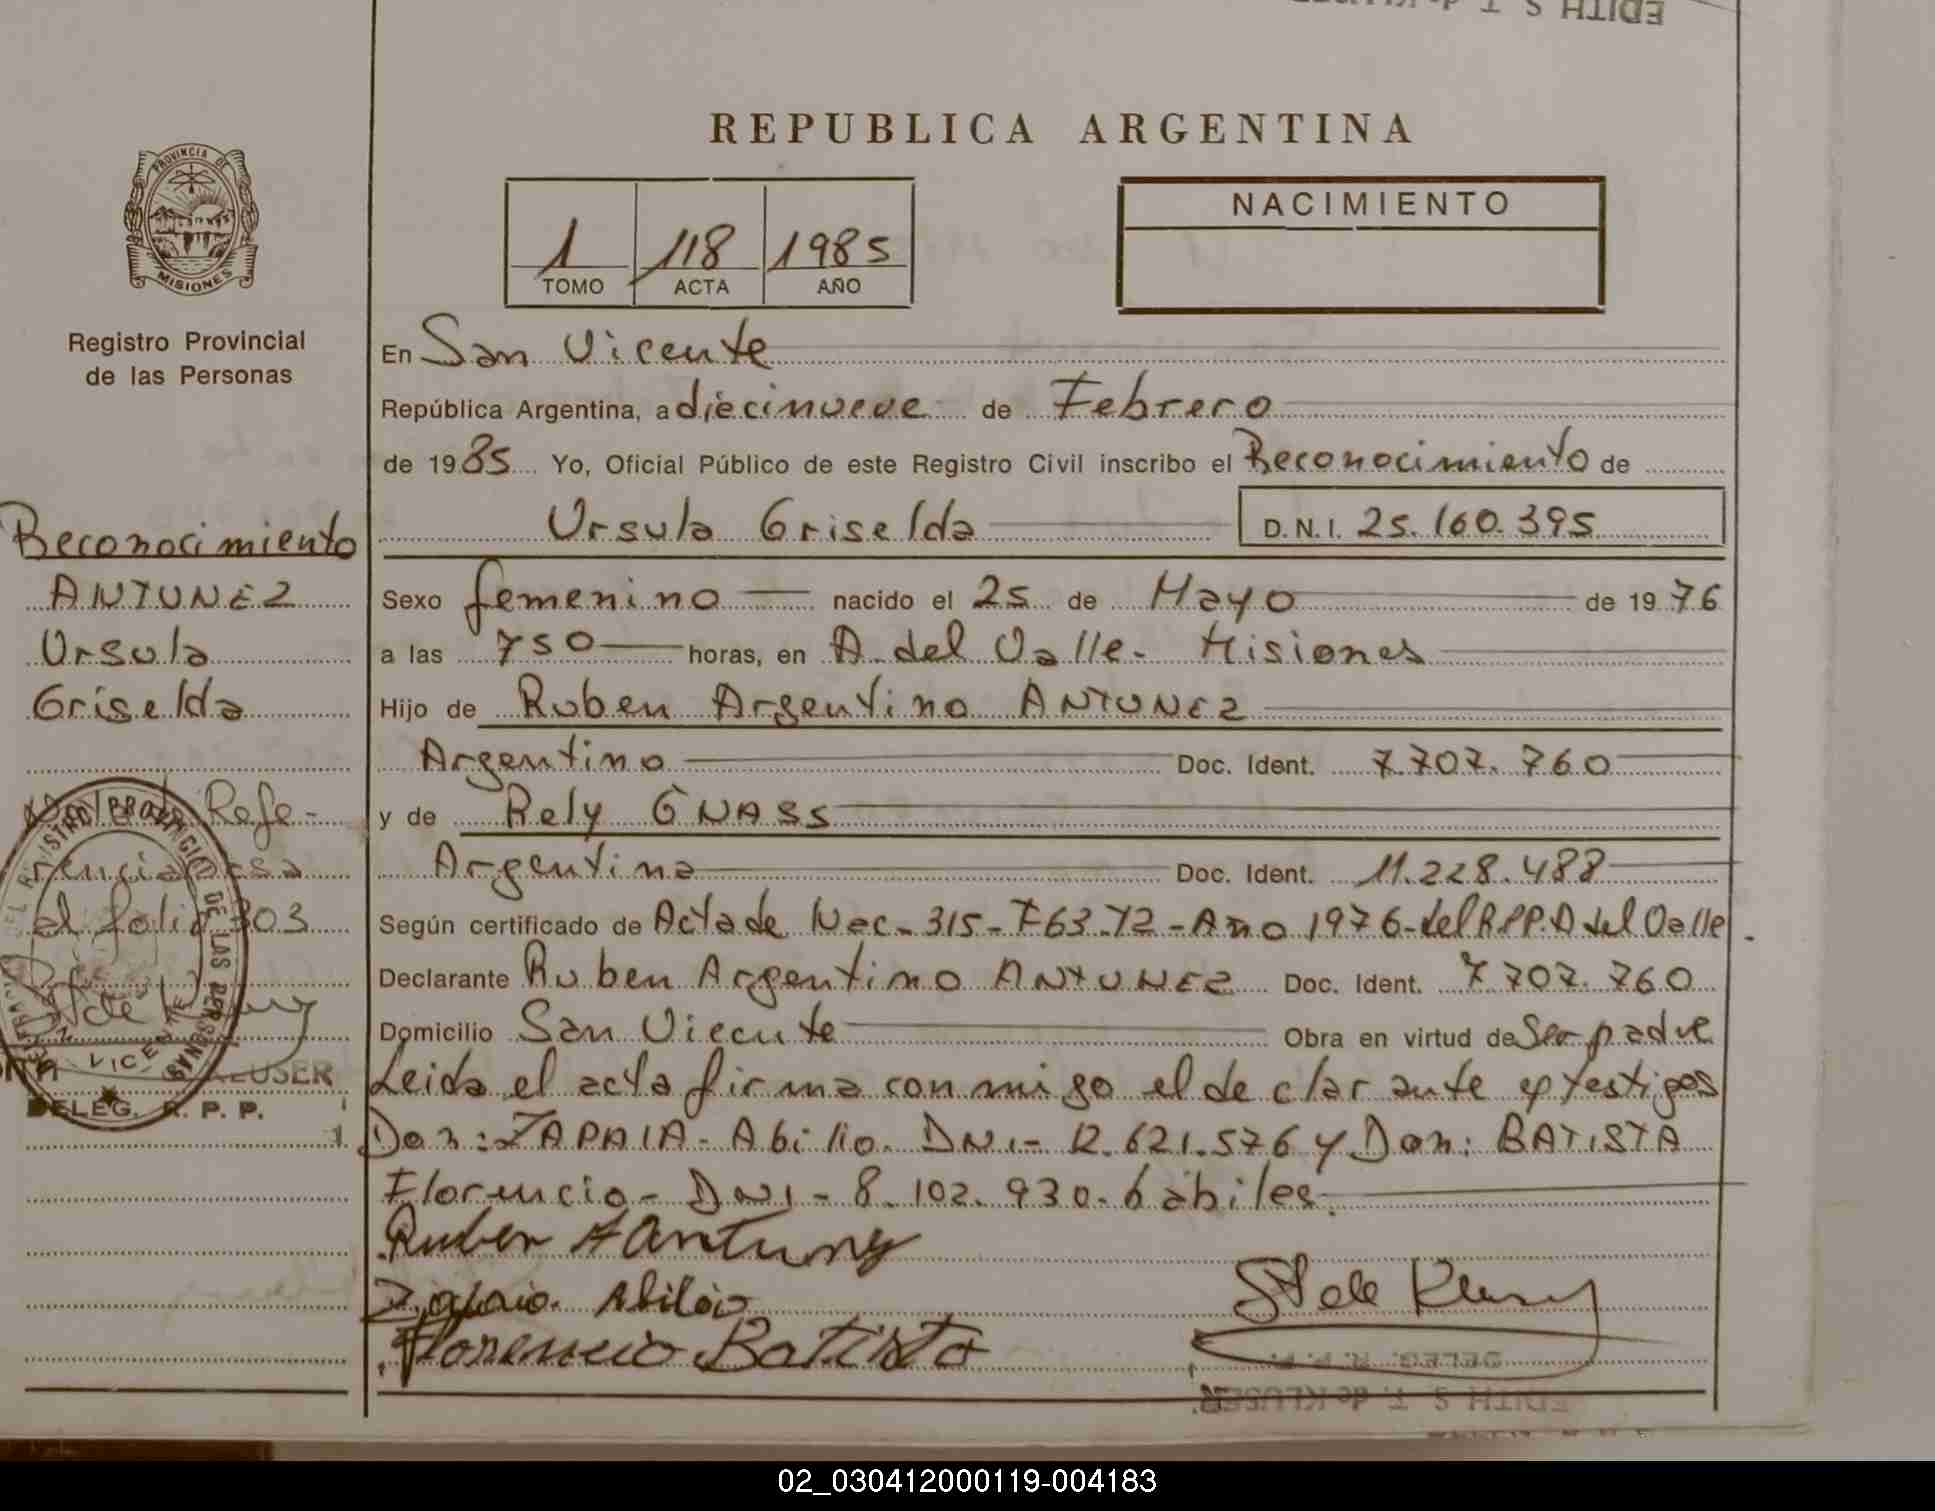 EDITH S. T. de
REPUBLICA ARGENTINA
PROVINCIA DE
MISIONES
Registro Provincial
de las Personas
1 118 1985
TOMO ACTA AÑO
NACIMIENTO
En San Vicente
República Argentina, a diecinueve de Febrero
de 1985 Yo, Oficial Público de este Registro Civil inscribo el Reconocimiento de
Ursula Griselda D.N.I. 25.160.395
Sexo femenino nacido el 25 de Mayo de 1976
a las 750 horas, en A. del Valle. Misiones
Hijo de Ruben Argentino ANTUNEZ
Argentino Doc. Ident. 7.707.760
y de Rely GNASS
Argentina Doc. Ident. 11.228.488
Según certificado de Acta de Nac. 315-F63.T2-Año 1976-del R.P.P. A del Valle.
Declarante Ruben Argentino ANTUNEZ Doc. Ident. 7.707.760
Domicilio San Vicente Obra en virtud de Ser padre
Leida el acta firma conmigo el declarante y testigos
Don: ZAPAIA- Abilio. DNI- 12.621.576 y Don: BATISTA
Florencio- DNI- 8.102.930. habiles.
Ruben A Antunez
Abilio
Florencio Batista
DELEG. R. P. P.
EDITH S. T. de KLEUSER
Reconocimiento
ANTUNEZ
Ursula
Griselda
Refe-
rencia
al folio 303
REGISTRO PROVINCIAL DE LAS PERSONAS
VICENTE
KLEUSER
DELEG. R. P. P.
02_030412000119-004183